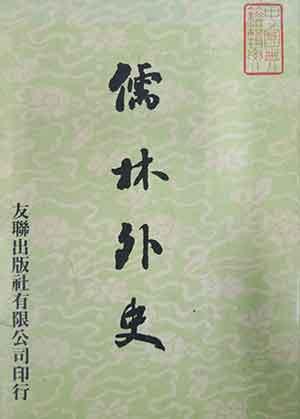 儒林外史
友聯出版社有限公司印行